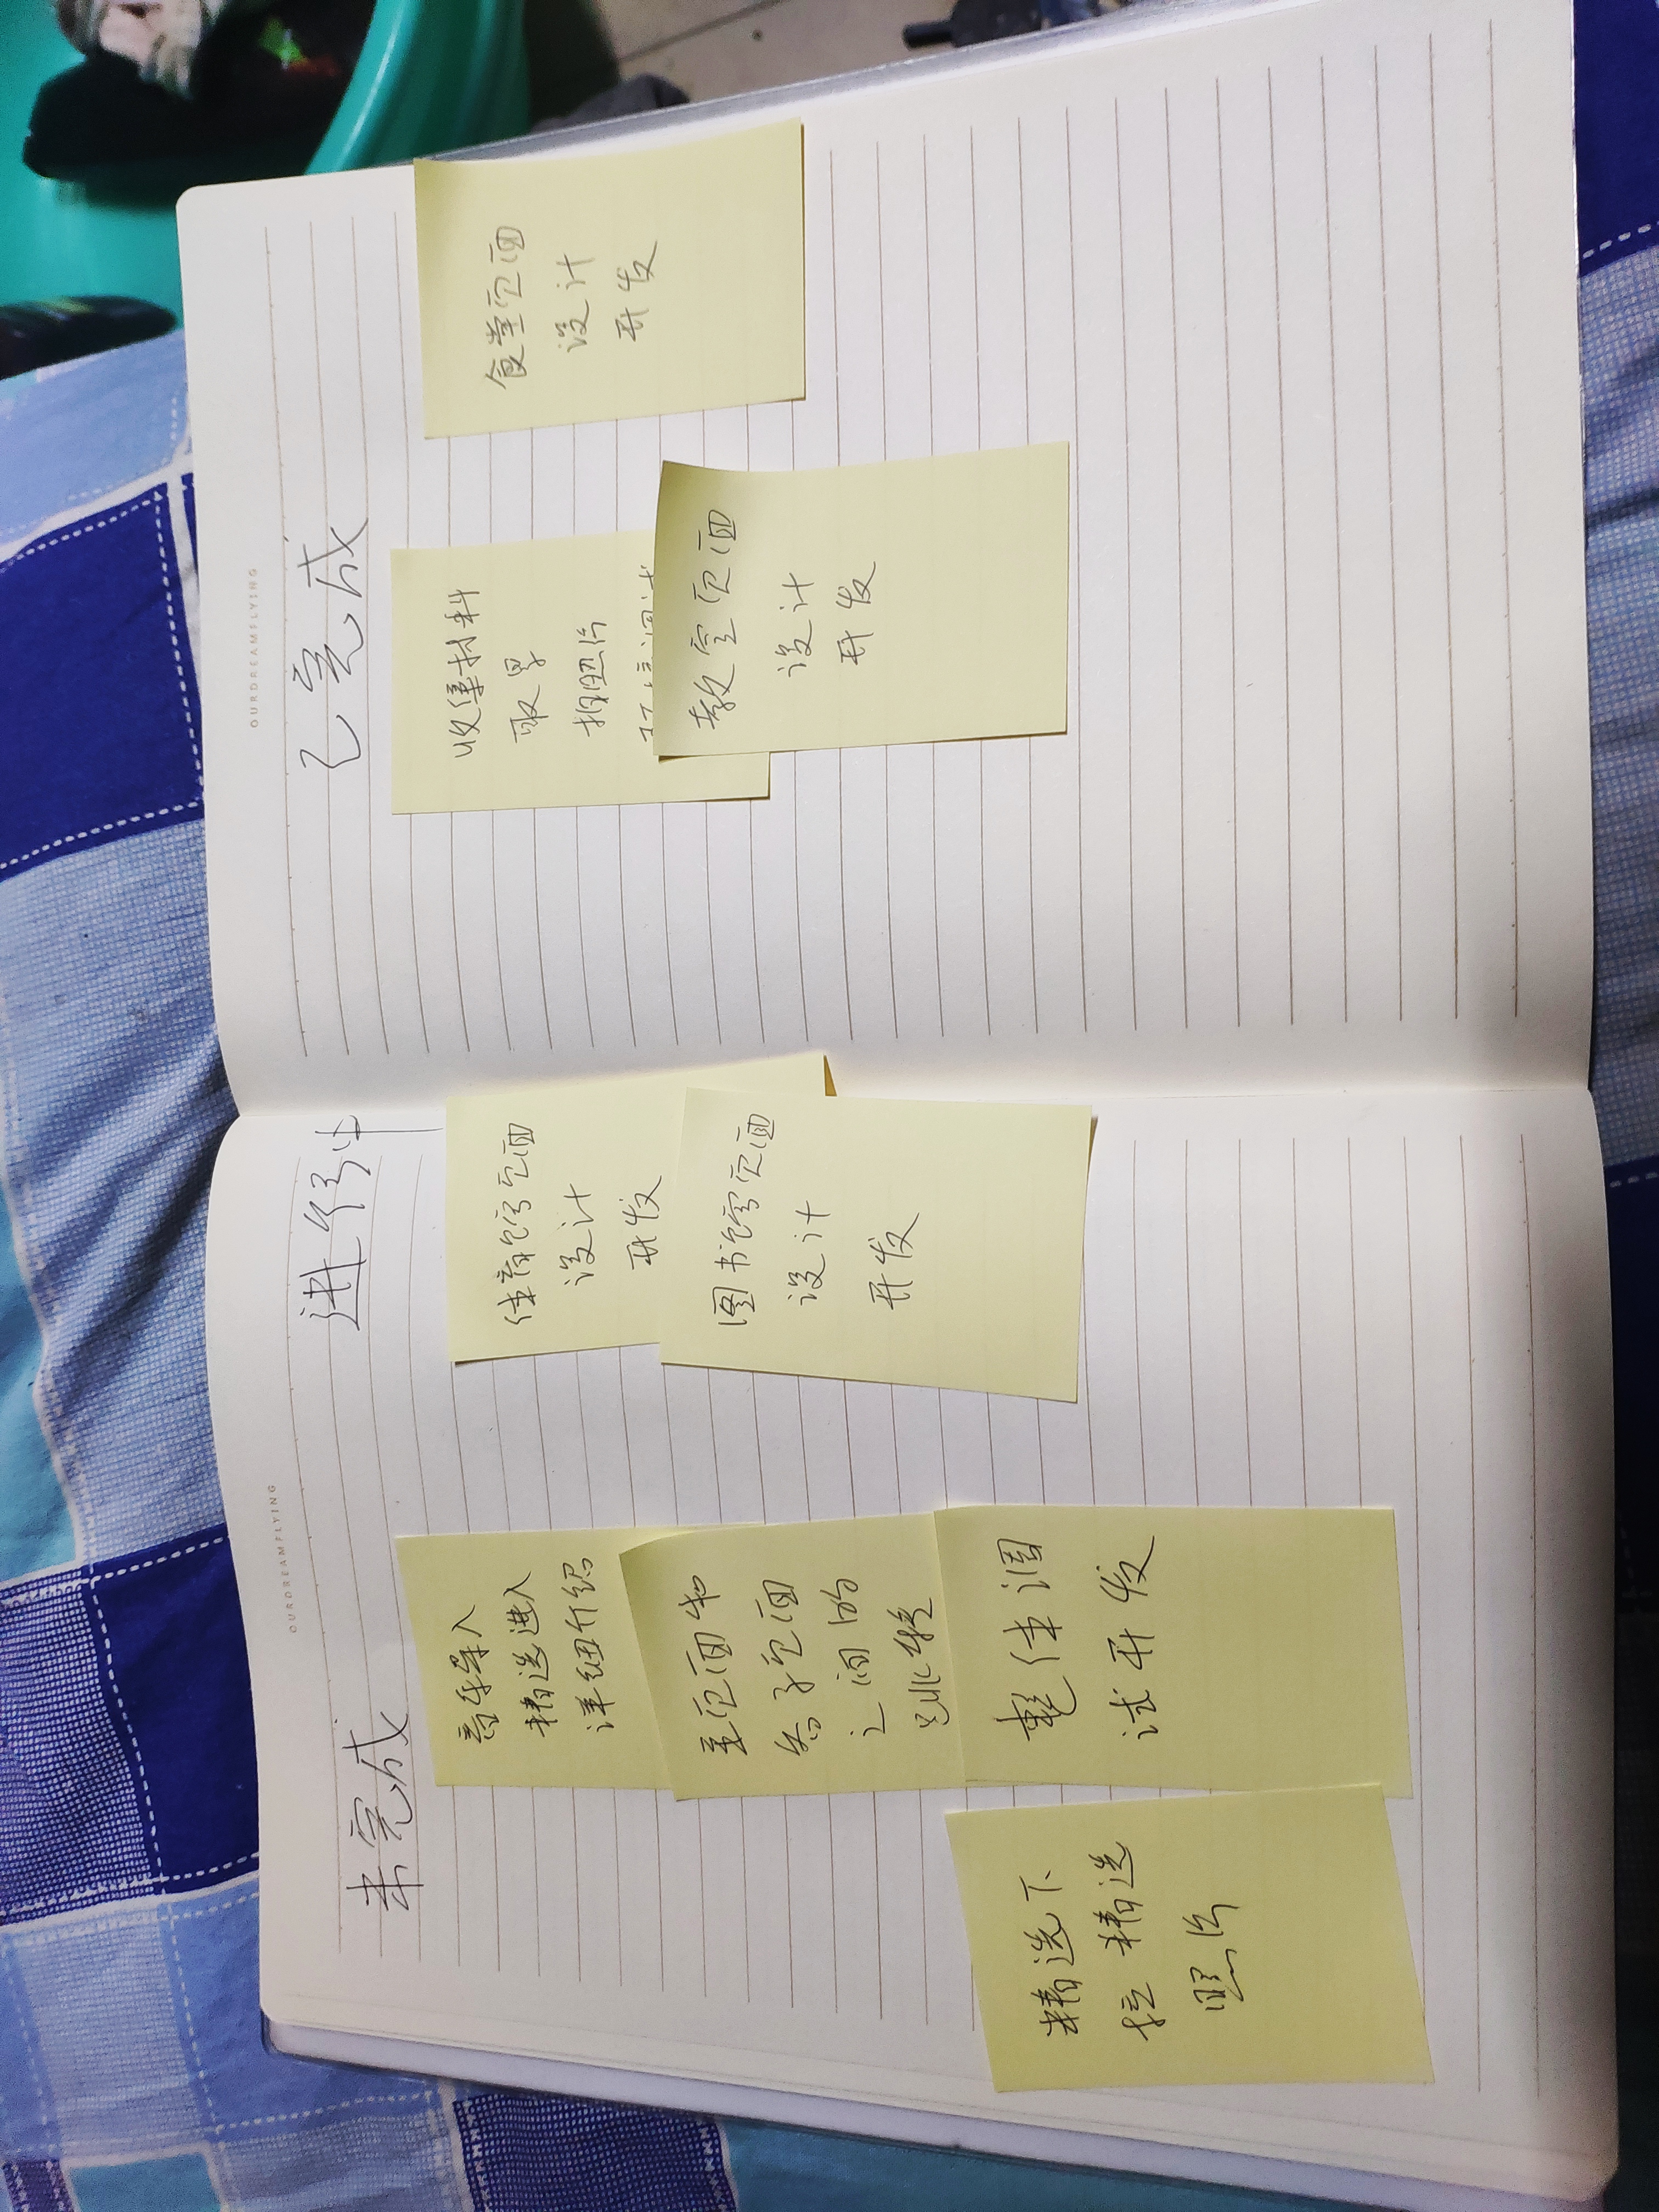 OURDREAMFLYING
未完成
进行中
音乐导入
精选进入
详细介绍
主页面和
各子页面
之间的
跳转
整体调
试开发
精选下
拉精选
照片
体育馆页面
设计
开发
图书馆页面
设计
开发
OURDREAMFLYING
已完成
收集材料
取景
拍照片
教室页面
设计
开发
食堂页面
设计
开发